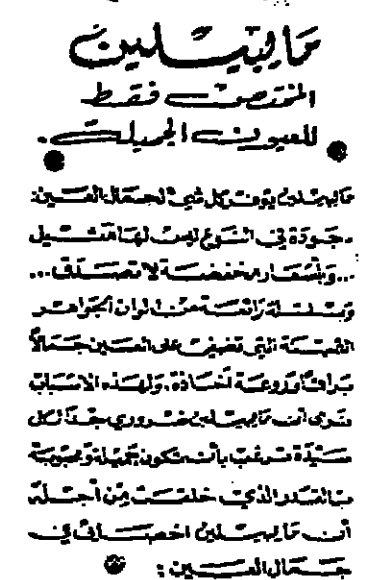 مايبيلين
المختصون فقط
للعيون الجميلة.
مايبيلين يوفر كل شيء لجمال العين:
.جودة في النوع ليس لها مثيل
...وبأسعار مخفضة لا تصدق...
وبسلسلة رائعة من ألوان الجواهر
الثمينة التي تضفي على العين جمالاً
براقاً وروعة أخاذة. ولهذه الأسباب
نرى أن مايبيلين ضروري جداً لكل
سيدة ترغب بأن تكون جميلة ومحبوبة
بالقدر الذي خلقت من أجله
أن مايبيلين اخصائي في
جمال العين: